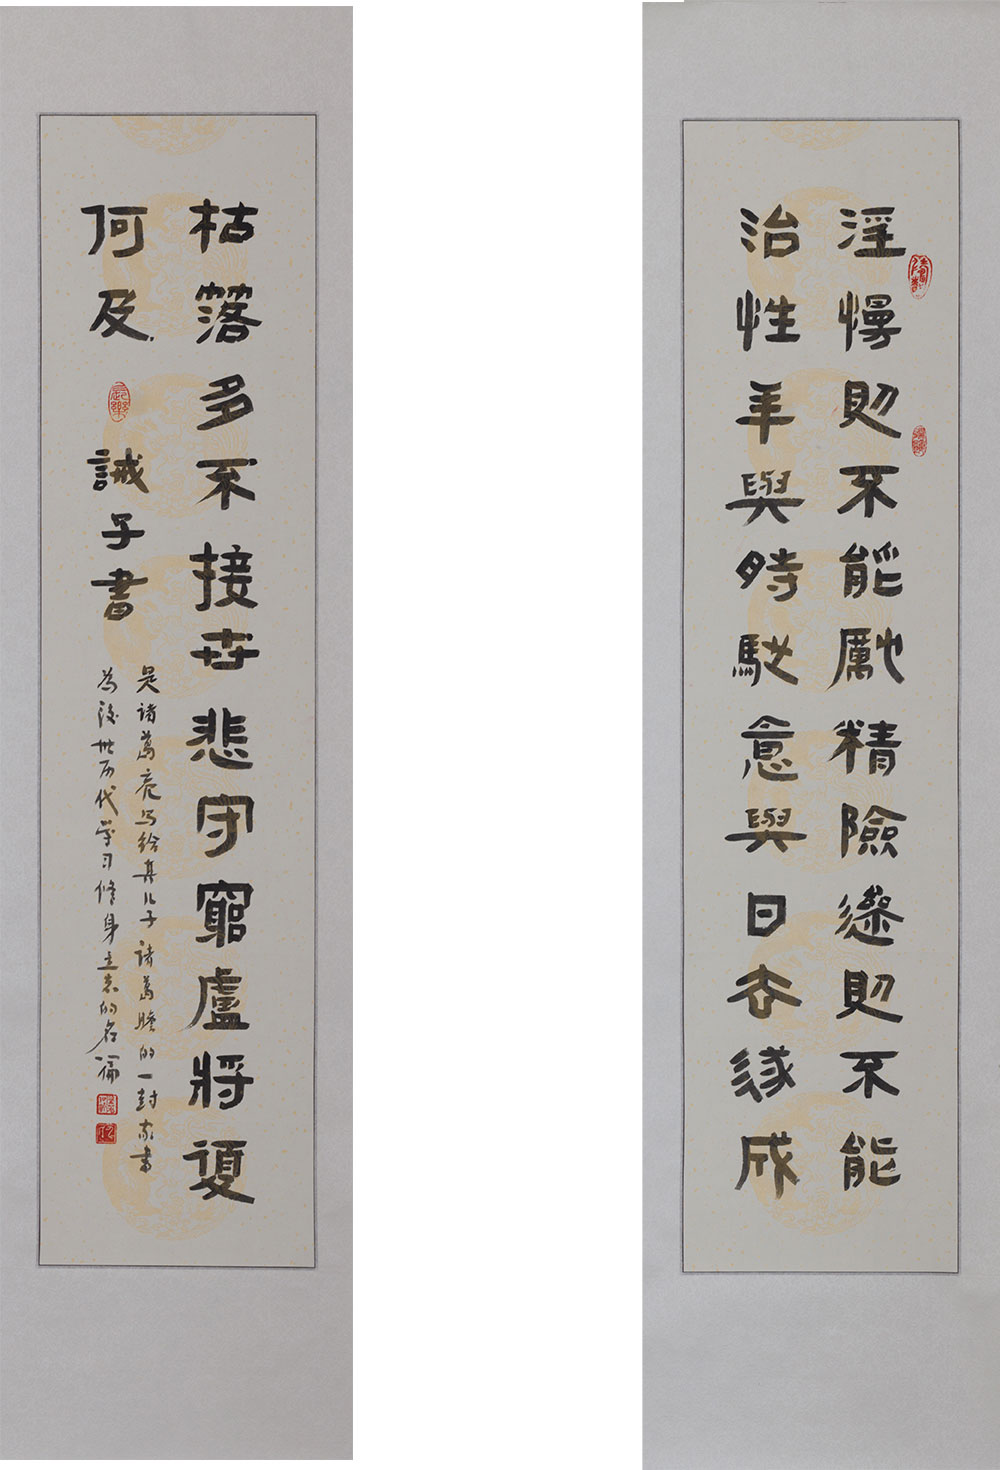 淫慢則不能勵精險躁則不能
治性年與時馳意與日去遂成
枯落多不接世悲守窮廬將復
何及
誡子書
是诸葛亮写给其儿子诸葛瞻的一封家书
為後世历代学习修身立志的名篇